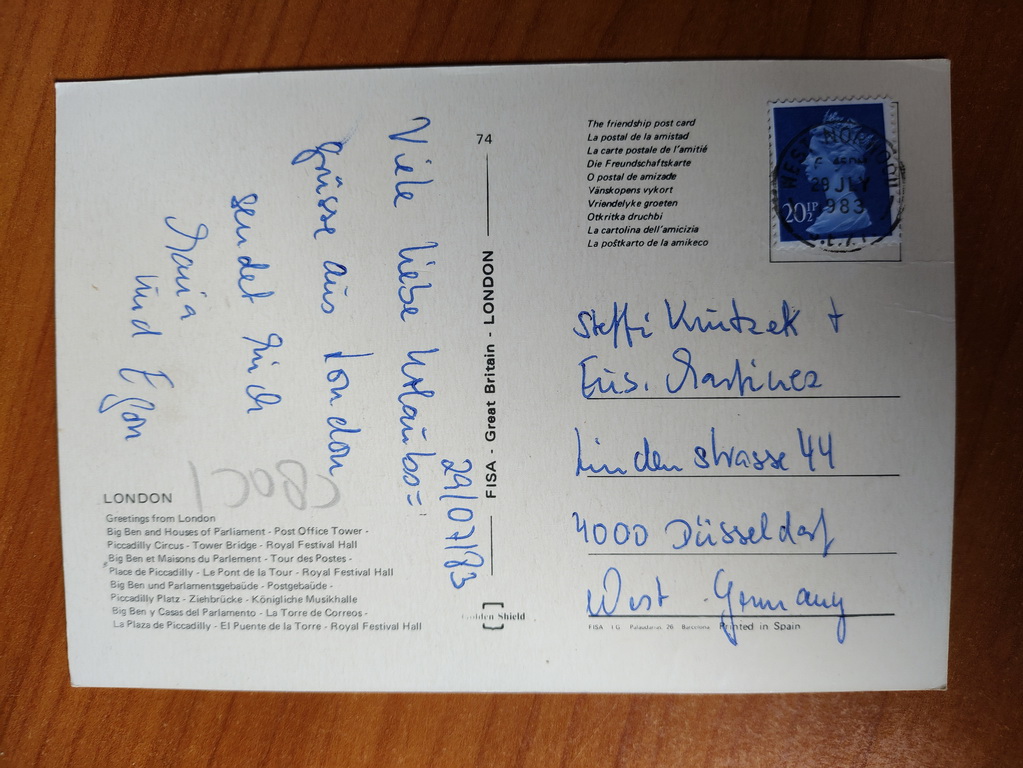 LONDON
Greetings from London
Big Ben and Houses of Parliament - Post Office Tower -
Piccadilly Circus - Tower Bridge - Royal Festival Hall
Big Ben et Maisons du Parlement - Tour des Postes -
Place de Piccadilly - Le Pont de la Tour - Royal Festival Hall
Big Ben und Parlamentsgebaüde - Postgebaüde -
Piccadilly Platz - Ziehbrücke - Königliche Musikhalle
Big Ben y Casas del Parlamento - La Torre de Correos -
La Plaza de Piccadilly - El Puente de la Torre - Royal Festival Hall
29/07/83
Viele liebe Urlaubs=
grüsse aus London
sendet Euch
Maria
und Egon
74
FISA - Great Britain - LONDON
Golden Shield
The friendship post card
La postal de la amistad
La carte postale de l'amitié
Die Freundschaftskarte
O postal de amizade
Vänskopens vykort
Vriendelyke groeten
Otkritka druchbi
La cartolina dell'amicizia
La poŝtkarto de la amikeco
20½P
29 JLY
1983
Steffi Krutzek +
Eus. Martinez
Lindenstrasse 44
4000 Düsseldorf
West Germany
FISA I.G. Palaudarias, 26 Barcelona Printed in Spain